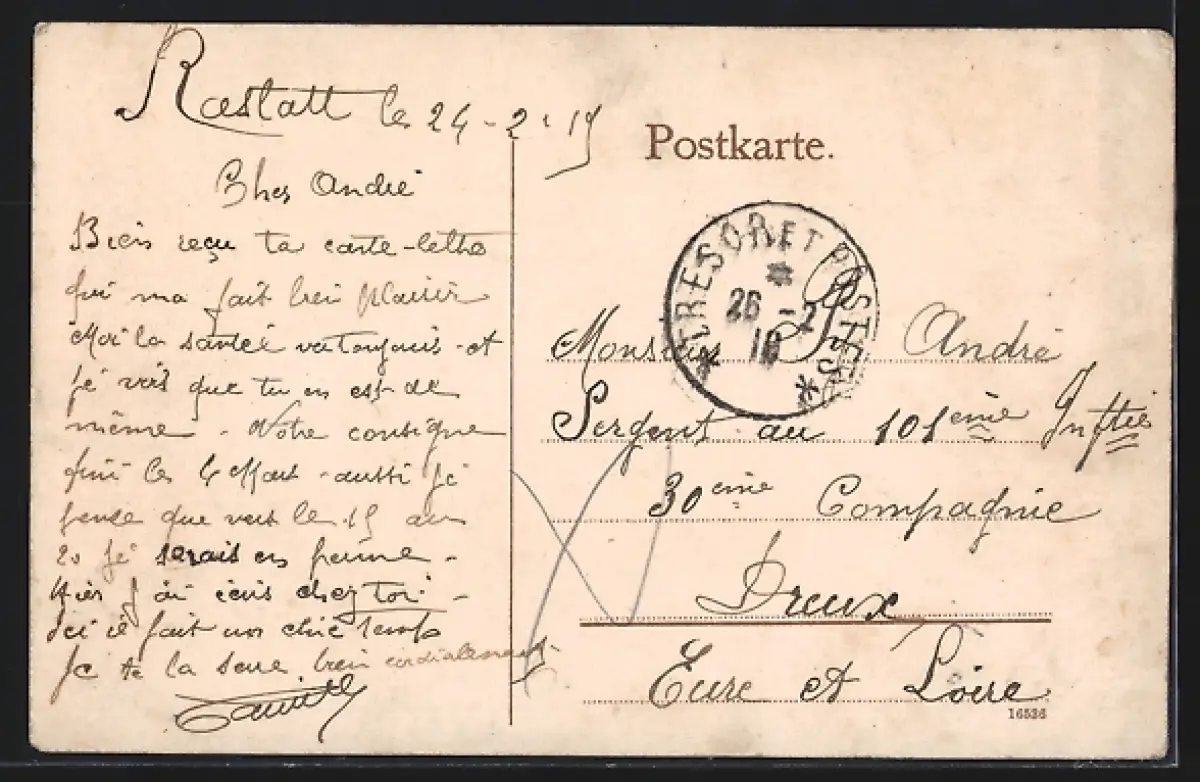 Rastatt le 24-2-19
Cher André
Bien reçu ta carte-lettre
qui ma fait bien plaisir
Moi la santée va toujours et
je vois que tu en est de
même - Notre consigne
fini le 4 aussi je
pense que vers le 15 au
20 je serais en perme -
Hier j'ai écris chez toi -
Ici il fait un chic temps
Je te la serre bien cordialement
Postkarte.
TRESOR ET POSTES
26 -2
19
Monsieur André
Sergent au 101eme Inftie
30eme Compagnie
Dreux
Eure et Loire
16536